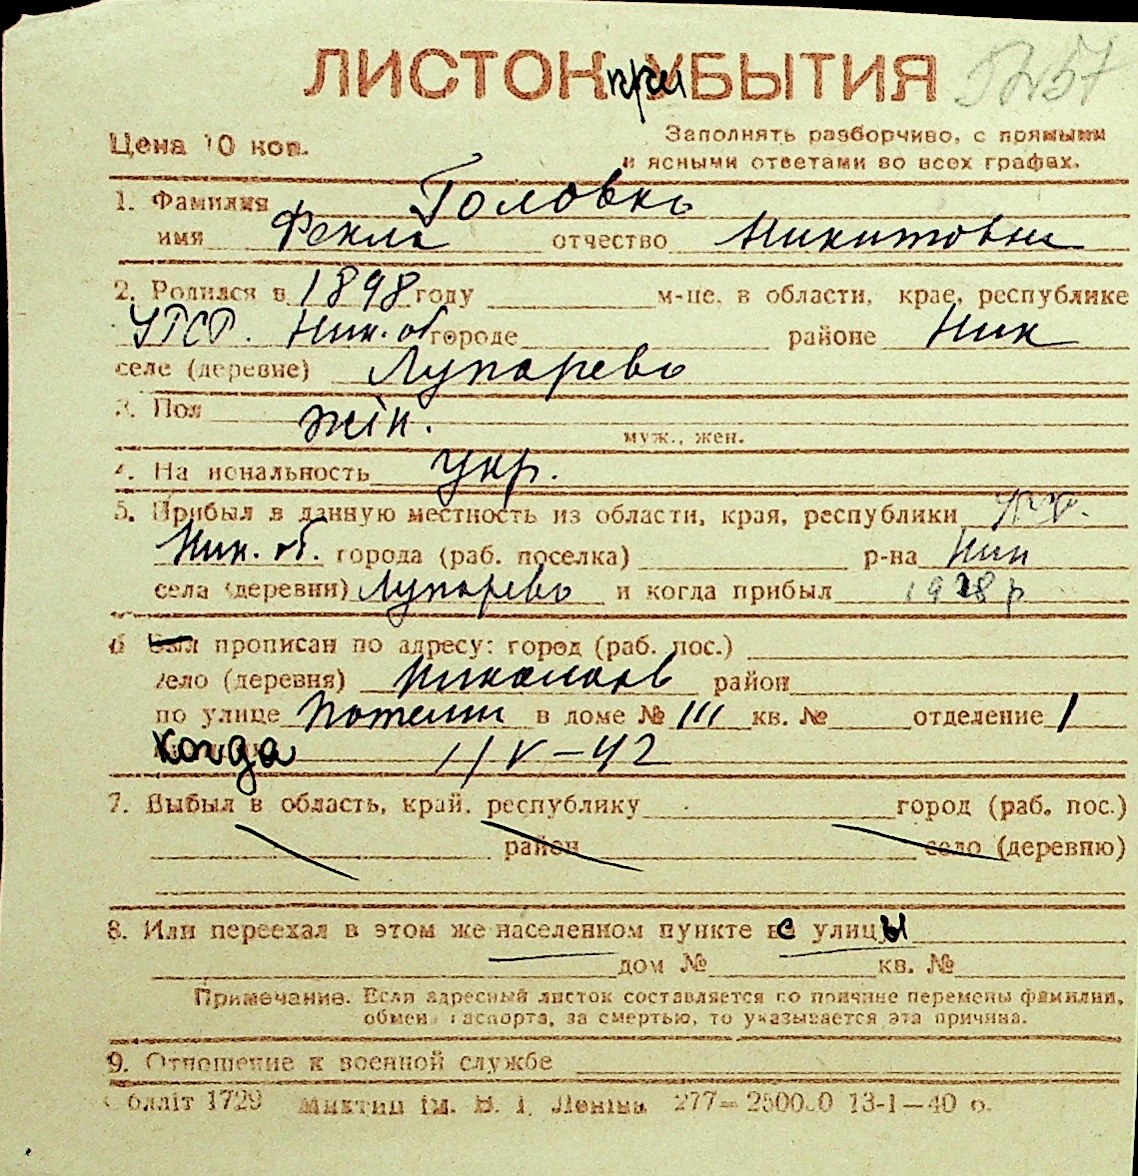 ЛИСТОК прибЫТИЯ
Цена 10 коп.
Заполнять разборчиво, с прямыми
и ясными ответами во всех графах.
1. Фамилия Головко
имя Фекла отчество Никитовна
2. Родился в 1898 году м-це, в области, крае, республике
УРСР. Ник. об городе районе Ник
селе (деревне) Лупарево
3. Пол жін.
муж., жен.
4. На иональность укр.
5. Прибыл в данную местность из области, края, республики
Ник. об. города (раб. поселка) р-на Ник
села (деревни) Лупарево и когда прибыл 1928 р
6 Был прописан по адресу: город (раб. пос.)
село (деревня) Николаев район
по улице в доме № 111 кв. № отделение 1
когда 1/V-42
7. Выбыл в область, край, республику город (раб. пос.)
район село (деревню)
8. Или переехал в этом же населенном пункте с улицы
дом № кв. №
Примечание. Если адресный листок составляется по причине перемены фамилии,
обмена паспорта, за смертью, то указывается эта причина.
9. Отношение к военной службе
бліт 1729 ім. В. І. Леніна 277— 13-1—40 о.